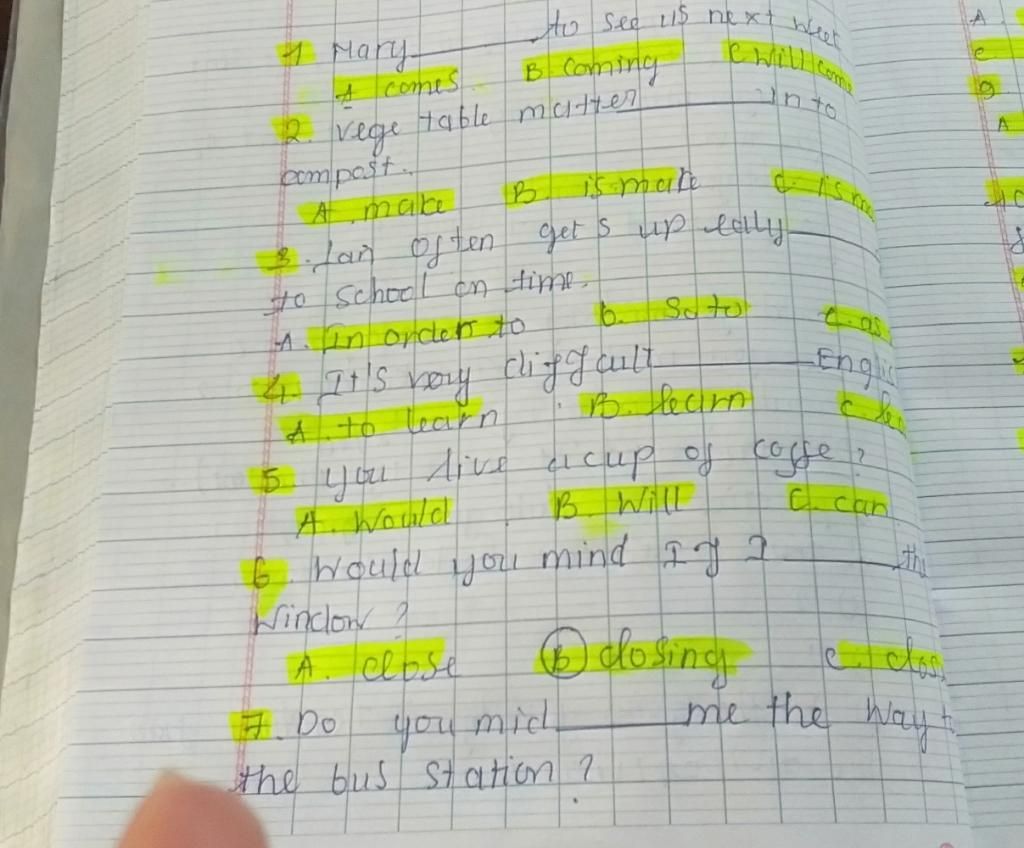 1 Mary ______ to see us next week
A comes B. coming C will come
2. Vege table matter ______ into
compost.
A. make B. is make C. is
3. Lan often gets up eally ______
to school on time.
A. In order to b. So to C. as
4. It's very diffcult ______
A. to learn B. learn C.
5. you live a cup of coffe ?
A. Would B. Will C. can
6. Would you mind If I ______ the
Window ?
A. close B closing C.
7. Do you mid ______ me the way
the bus station ?
A.
C
9
A